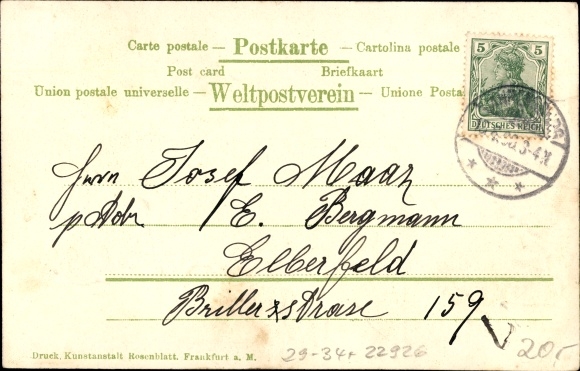 Carte postale — Postkarte — Cartolina postale
Post card Briefkaart
Union postale universelle — Weltpostverein — Unione Posta
5 5
DEUTSCHES REICH
Herrn Josef Maar
p Adr. E. Bergmann
Elberfeld
Brillerstrasse 159
Druck. Kunstanstalt Rosenblatt. Frankfurt a. M.
29-34+ 22926
20,-